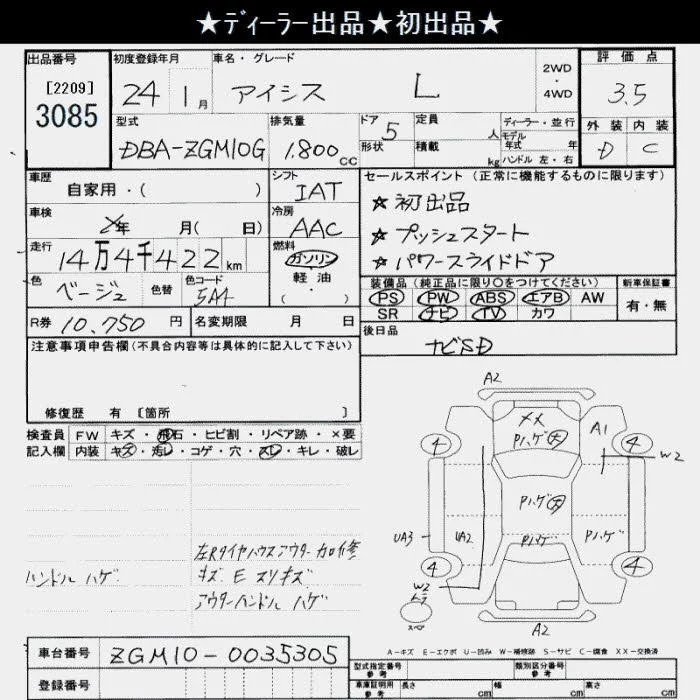 ★ﾃﾞｨｰﾗｰ出品★初出品★
出品番号
[2209]
3085
初度登録年月
24 1月
車名・グレード
アイシス L
2WD
・
4WD
評価点
3.5
外装 内装
D C
型式
DBA-ZGM10G
排気量
1.800cc
ドア
5
形状
定員
人
積載
kg
ディーラー・並行
モデル
年式 年
ハンドル 左・右
車歴
自家用・( )
シフト
IAT
セールスポイント (正常に機能するものに限ります)
★初出品
★プッシュスタート
★パワースライドドア
車検
年 月( 日)
冷房
AAC
走行
14万4千422km
燃料
ガソリン
軽油
色
ベージュ
色替
色コード
5A4
装備品 (純正品に限り○をつけてください)
PS PW ABS エアB AW
SR ナビ TV カワ
新車保証書
有・無
R券 10.750円
名変期限 月 日
後日品
ナビSD
注意事項申告欄(不具合内容等は具体的に記入して下さい)
修復歴 有 [箇所 ]
検査員
記入欄
FW キズ・飛石・ヒビ割・リペア跡・×要
内装 キズ・汚レ・コゲ・穴・スレ・キレ・破レ
ハンドル ハゲ
左Rタイヤハウスアウター カロ修
キズ E スリキズ
アウターハンドル ハゲ
A2
××
Pハゲ大
A1
4
4
W2
Pハゲ大
UA3
UA2
Pハゲ
4
4
W2
トラ
スペ
A2
A-キズ E-エクボ U-凹み W-補修跡 S-サビ C-腐食 XX-交換済
車台番号
ZGM10-0035305
登録番号
型式指定番号
参考
類別区分番号
参考
車庫証明用
参考
長さ cm
幅 cm
高さ cm